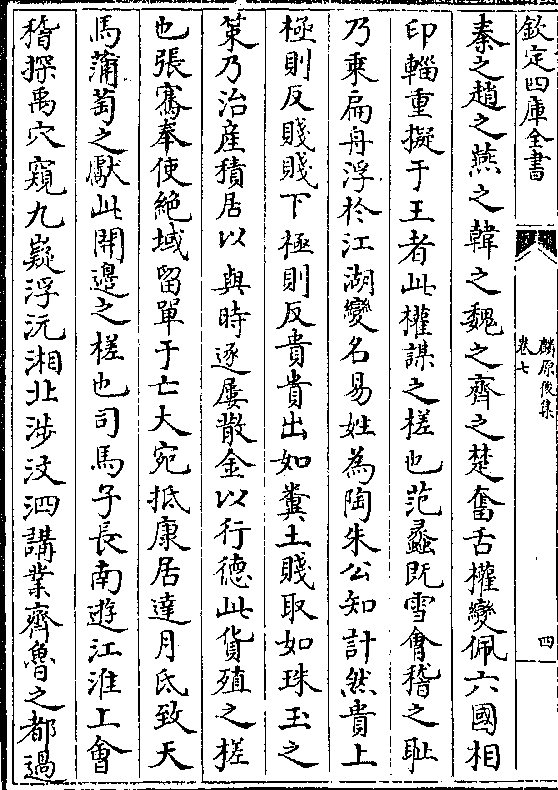 欽定四庫全書
麟原後集
卷七
四
秦之趙之燕之韓之魏之齊之楚奮舌權變佩六國相
印輜重擬于王者此權謀之槎也范蠡既雪會稽之恥
乃乘扁舟浮於江湖變名易姓為陶朱公知計然貴上
極則反賤賤下極則反貴貴出如糞土賤取如珠玉之
策乃治産積居以與時逐屢散金以行德此貨殖之槎
也張騫奉使絶域留單于亡大宛抵康居達月氏致天
馬蒲萄之獻此開邊之槎也司馬子長南遊江淮上會
稽探禹穴窺九嶷浮沅湘北涉汶泗講業齊魯之都過